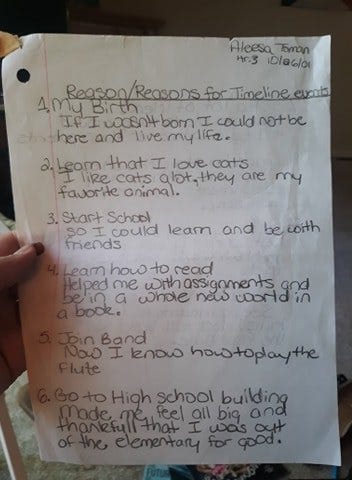 Aleesa Toman
Hr.3 10/26/01
Reason/Reasons for Timeline events
1. My Birth
If I wasn't born I could not be
here and live my life.
2. Learn that I love cats
I like cats alot, they are my
favorite animal.
3. Start School
so I could learn and be with
friends
4. Learn how to read
Helped me with assignments and
be in a whole new world in
a book.
5. Join Band
Now I know how to play the
flute
6. Go to High school building
made me feel all big and
thankfull that I was out
of the elementary for good.